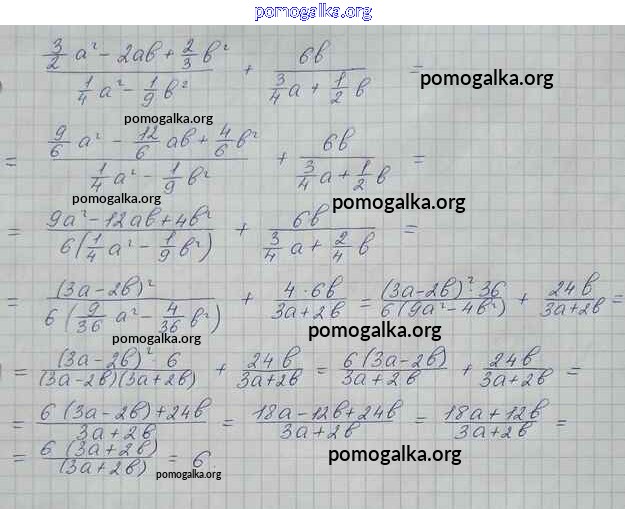 pomogalka.org
(3/2 a² - 2ab + 2/3 b²)/(1/4 a² - 1/9 b²) + 6b/(3/4 a + 1/2 b) = pomogalka.org
pomogalka.org
= (9/6 a² - 12/6 ab + 4/6 b²)/(1/4 a² - 1/9 b²) + 6b/(3/4 a + 1/2 b) =
pomogalka.org pomogalka.org
= (9a² - 12ab + 4b²)/(6(1/4 a² - 1/9 b²)) + 6b/(3/4 a + 2/4 b) =
= (3a - 2b)²/(6(9/36 a² - 4/36 b²)) + 4·6b/(3a + 2b) = (3a - 2b)²·36/(6(9a² - 4b²)) + 24b/(3a + 2b) =
pomogalka.org pomogalka.org
= (3a - 2b)²·6/((3a - 2b)(3a + 2b)) + 24b/(3a + 2b) = 6(3a - 2b)/(3a + 2b) + 24b/(3a + 2b) =
= (6(3a - 2b) + 24b)/(3a + 2b) = (18a - 12b + 24b)/(3a + 2b) = (18a + 12b)/(3a + 2b) =
= 6(3a + 2b)/(3a + 2b) = 6. pomogalka.org
pomogalka.org